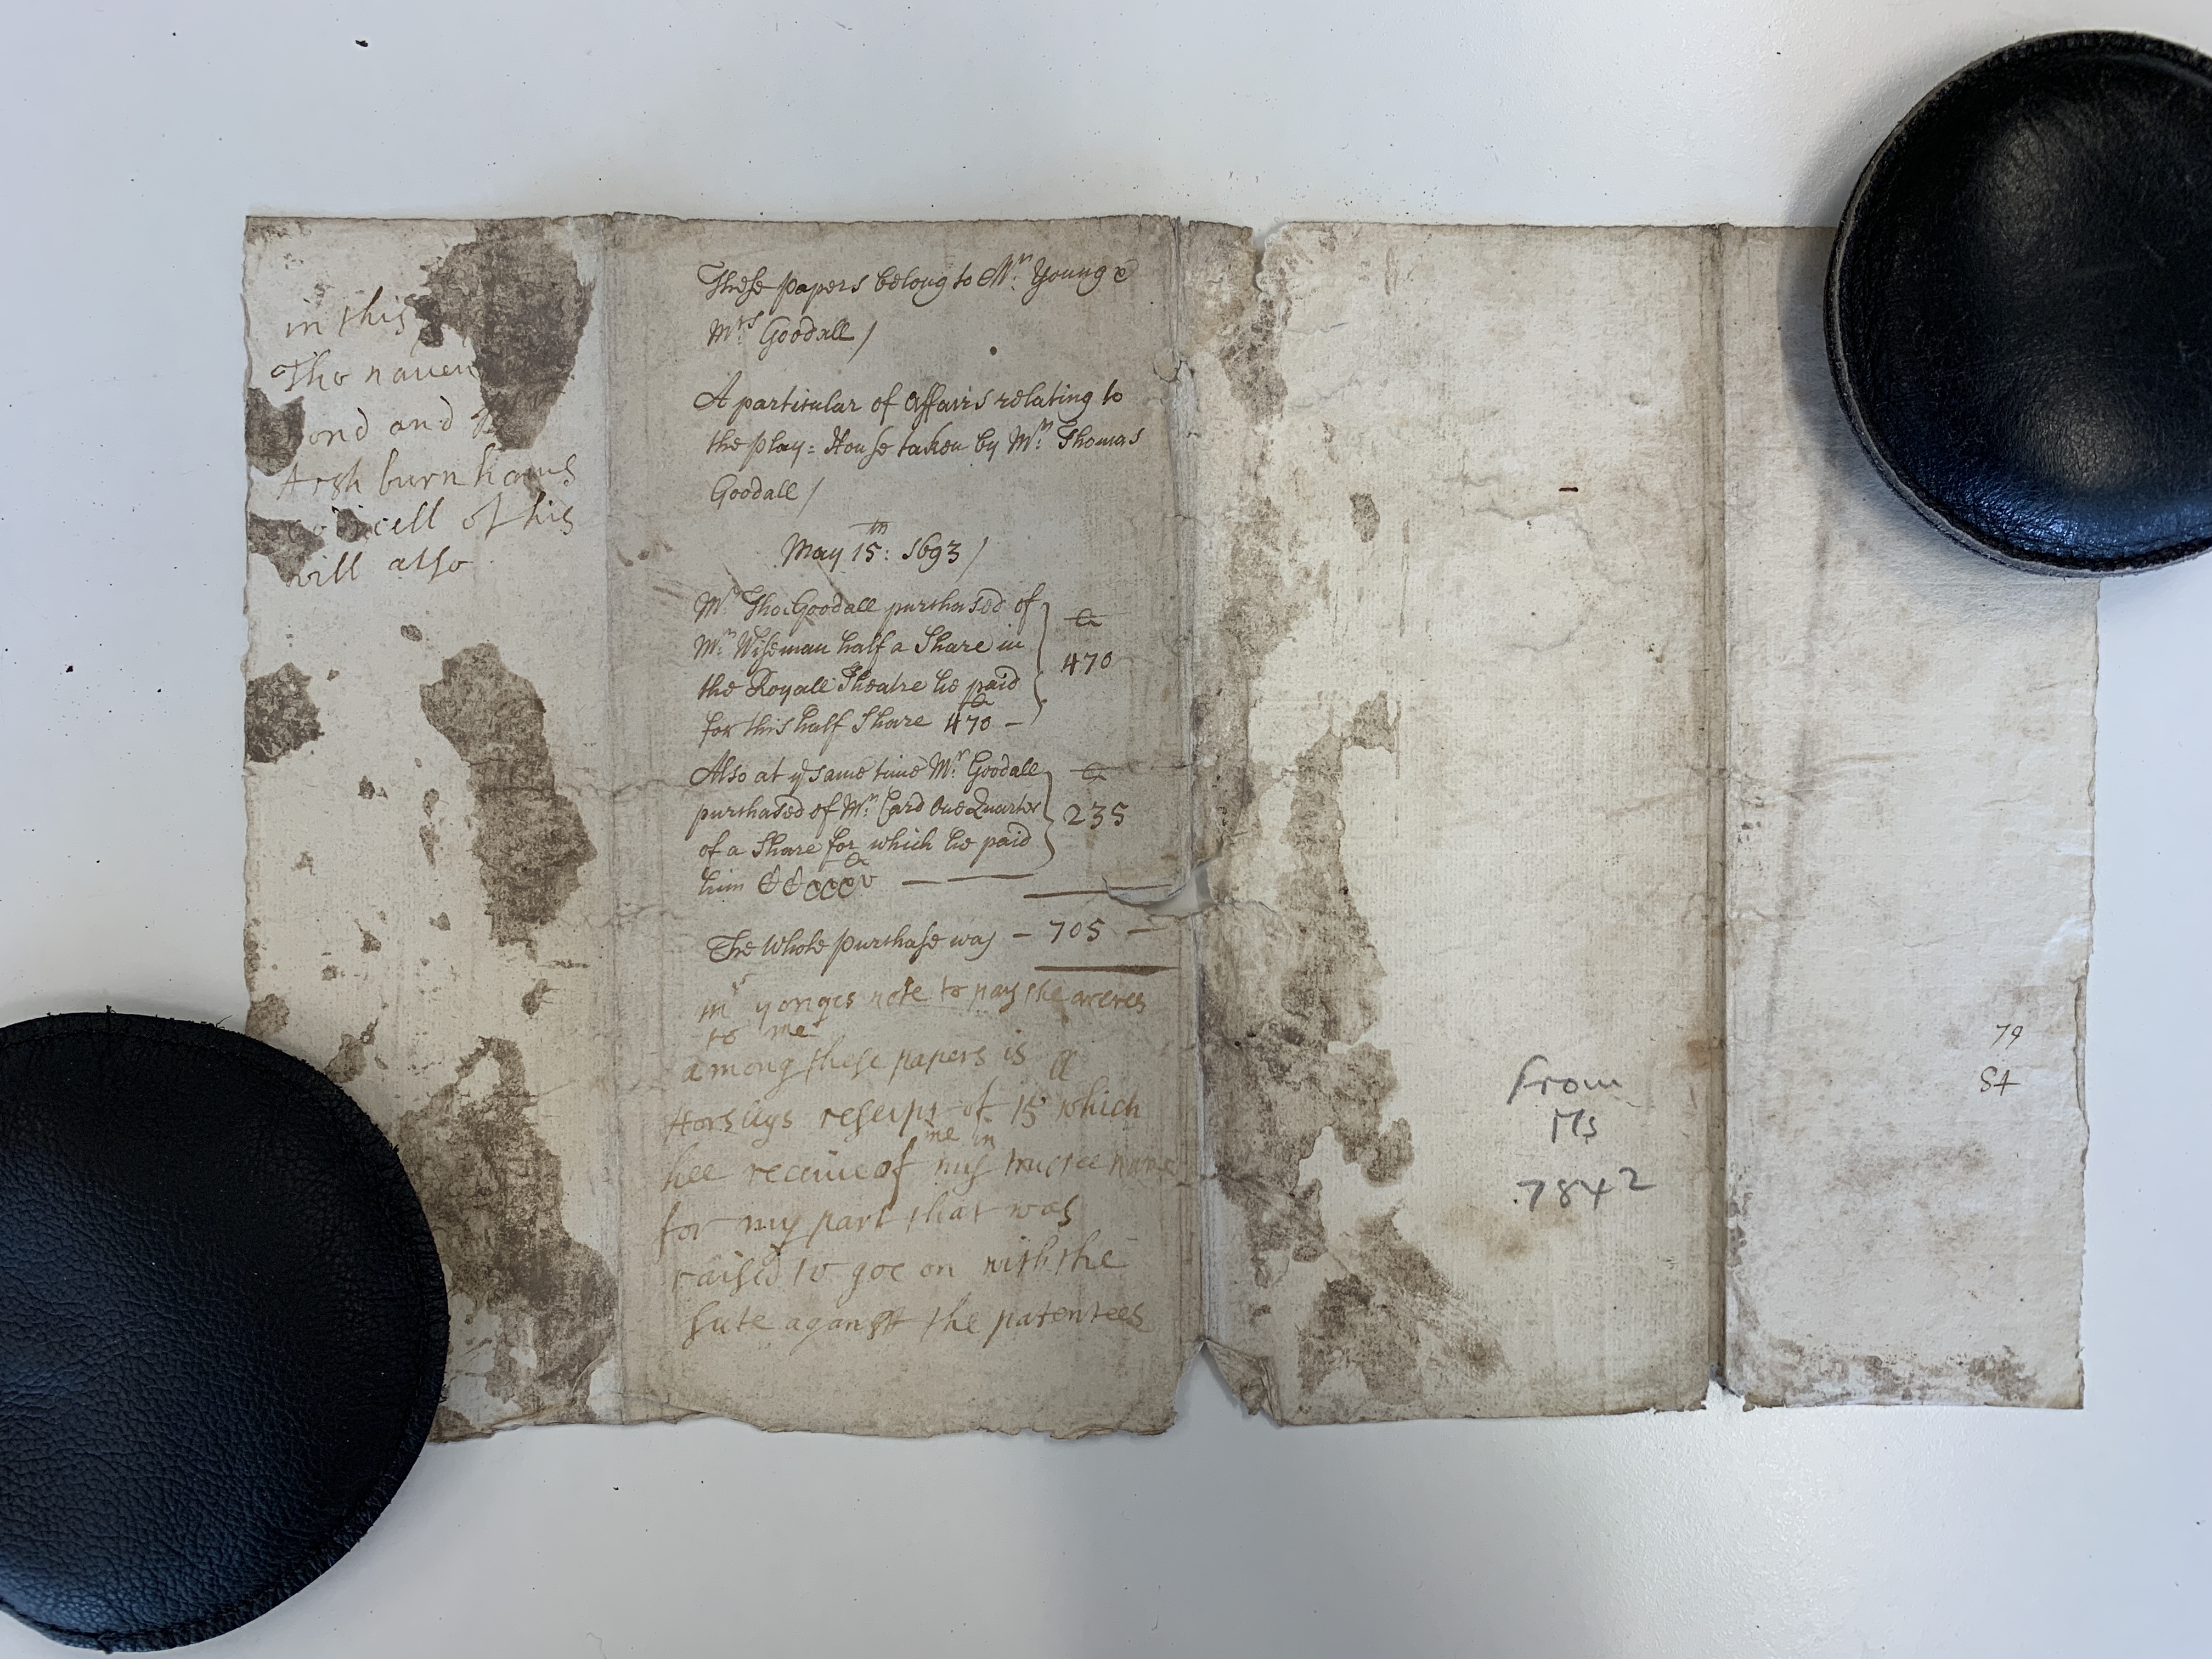 in this
Tho nauen
ond and
Arsh burnhams
codicell of his
will also
These papers belong to Mr. Young &
Mrs. Goodall /
A particular of Affairs relating to
the play=House taken by Mr. Thomas
Goodall /
May 15th: 1693 /
Mr. Tho: Goodall purchased of
Mr. Wiseman half a Share in
the Royall Theatre he paid
for this half Share 470 –
470
Also at ye same time Mr. Goodall
purchased of Mr. Card One Quarter
of a Share for which he paid
him CCxxxv
235
The Whole purchase was – 705 –
mr yonges note to pay the areres
to me
among these papers is a
Horsligs reseipt of 15 which
hee receiue of me in my trustee name
for my part that was
raised to goe on with the
sute aganst the patentees
From
Ms
7842
79
St